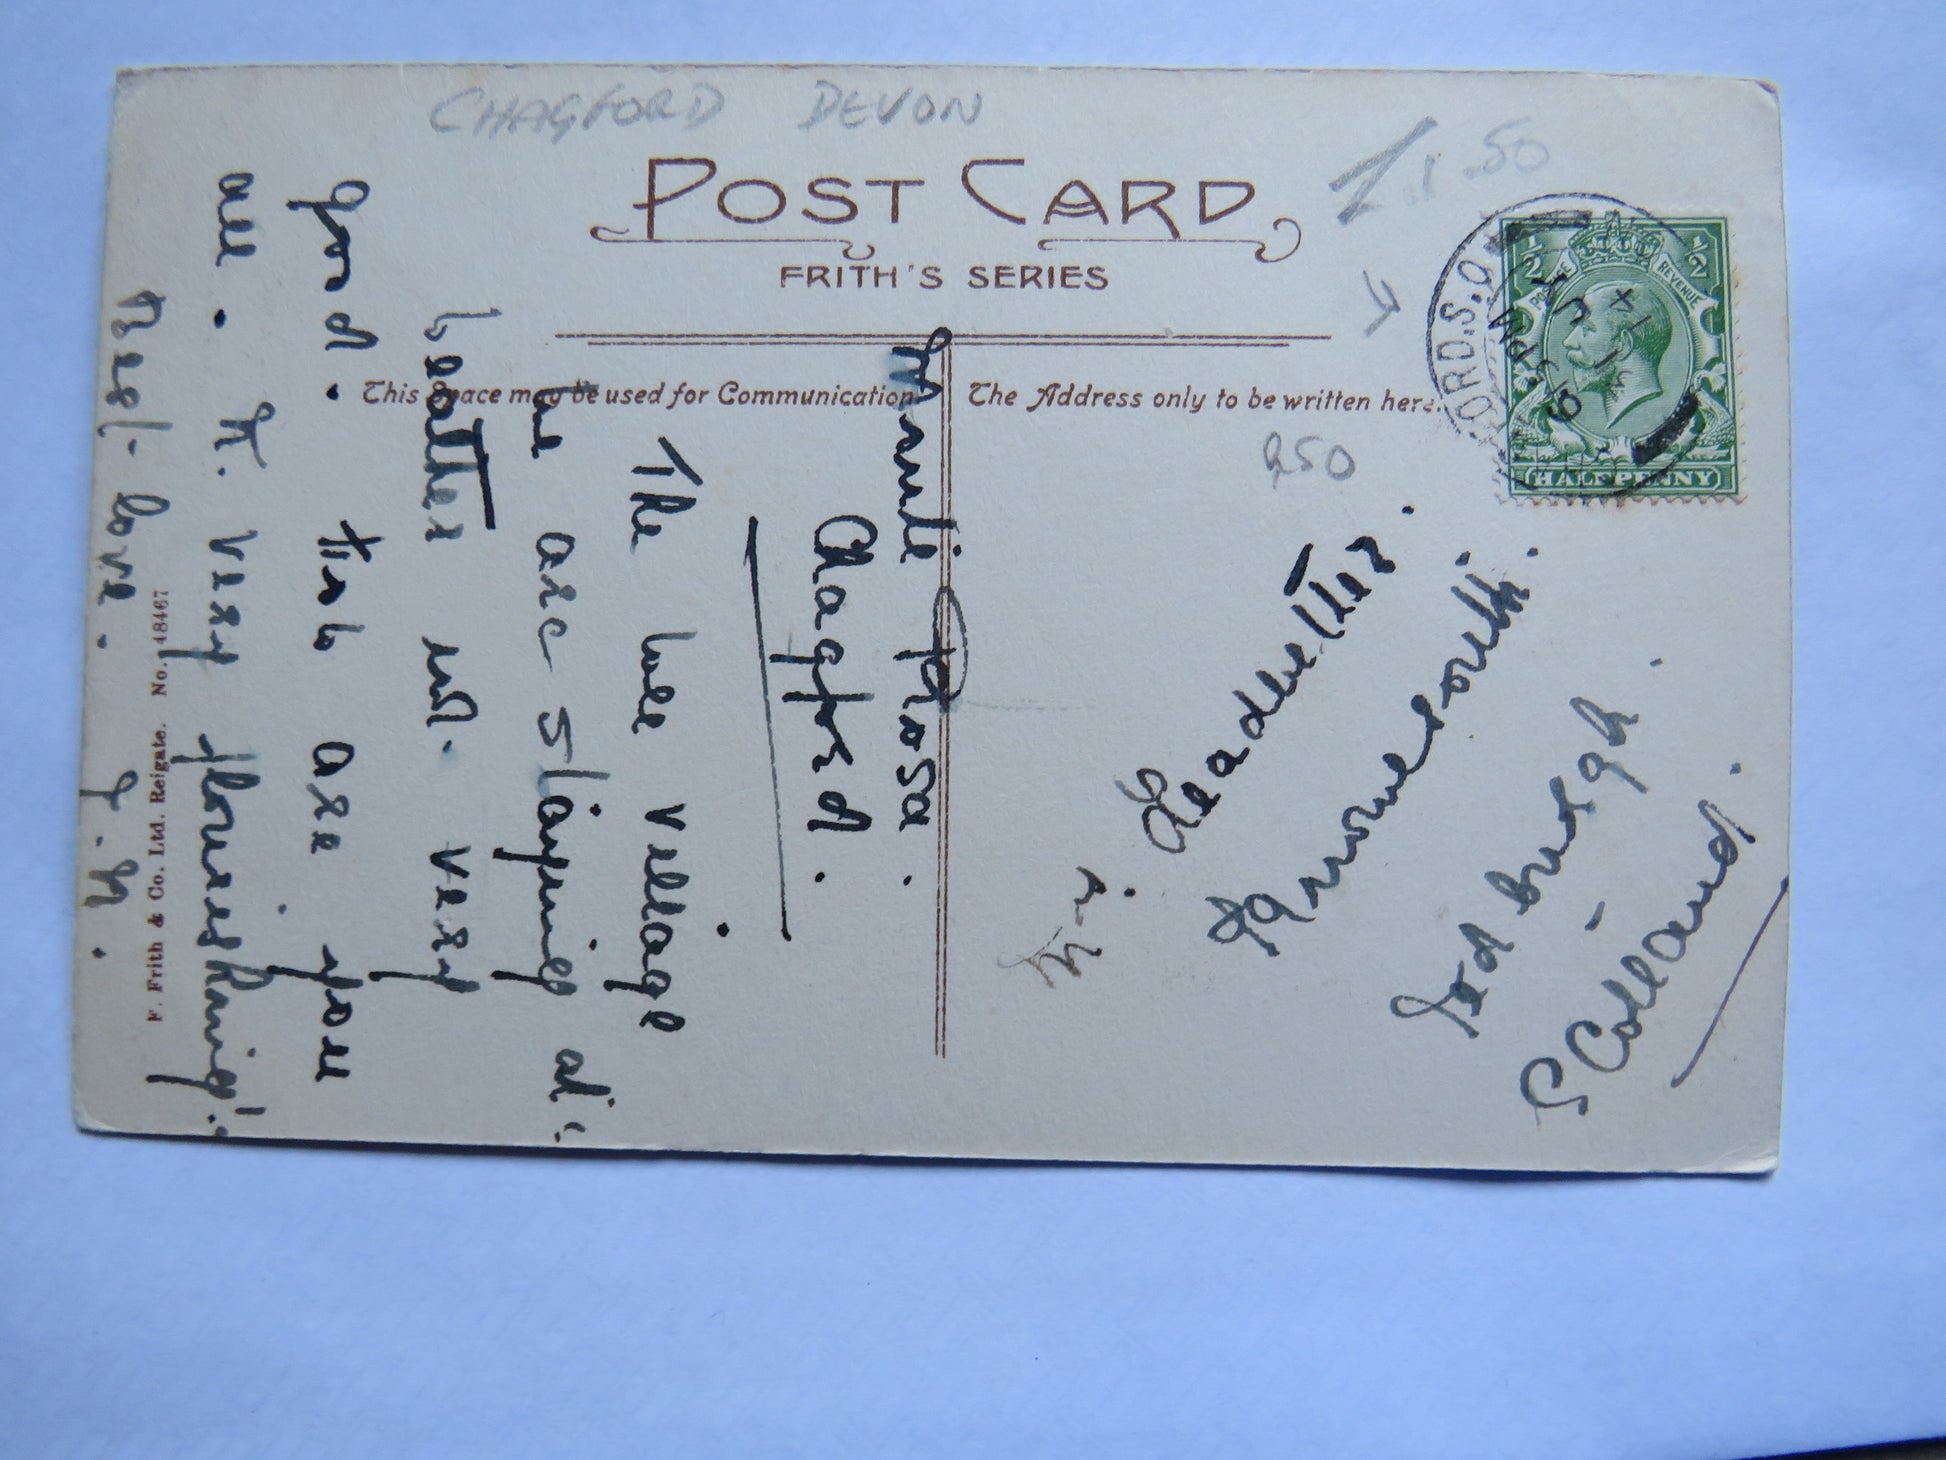 CHAGFORD DEVON
POST CARD
FRITH'S SERIES
This Space may be used for Communication
The Address only to be written here.
1.50
250
HALFPENNY
POSTAGE
REVENUE
1/2
1/2
ORD.S.O
Chagford.
The wee village
we are staying at:
Weather not very
good. Trust are you
all. K. very flourishing!
Best love. J.M.
Jedburgh
Scotland.
F. Frith & Co. Ltd. Reigate. No. 48467